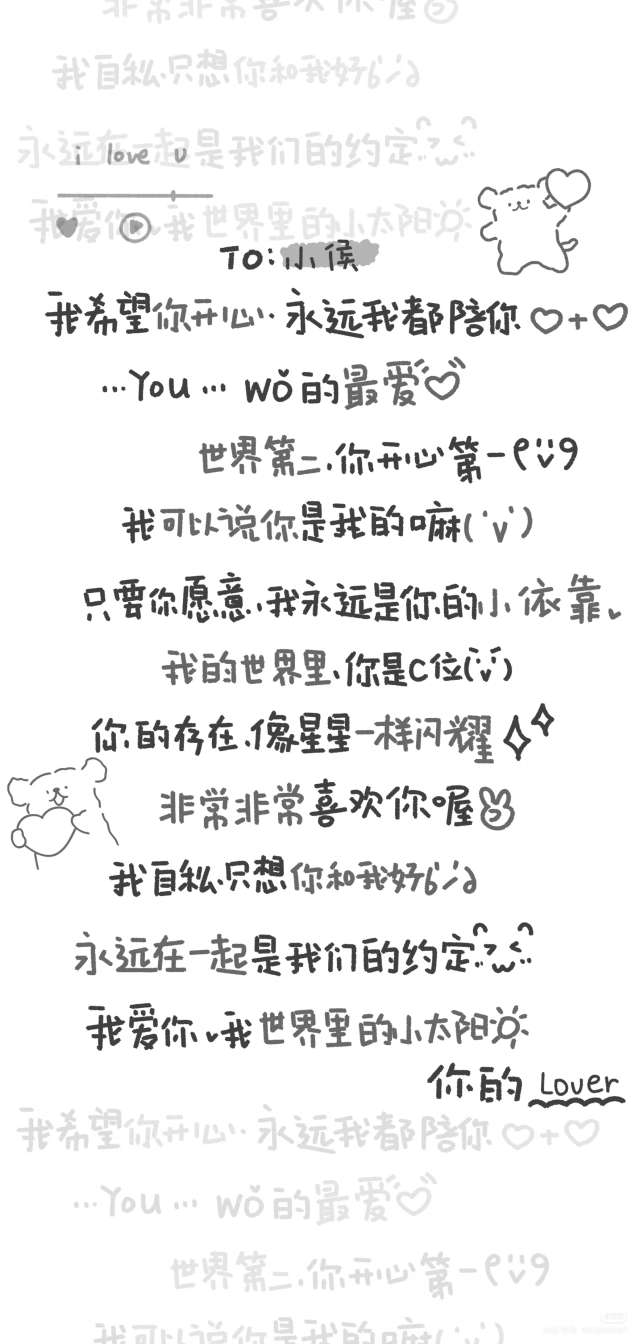 非常非常喜欢你喔
我自私.只想你和我好
永远在一起是我们的约定
i love u
我爱你 我世界里的小太阳
TO:小候
我希望你开心..永远我都陪你♡+♡
...You... wǒ的最爱♡
世界第二.你开心第一
我可以说你是我的嘛('v')
只要你愿意.我永远是你的小依靠
我的世界里.你是C位
你的存在.像星星一样闪耀
非常非常喜欢你喔
我自私.只想你和我好
永远在一起是我们的约定
我爱你 我世界里的小太阳
你的 Lover
我希望你开心..永远我都陪你♡+♡
...You... wǒ的最爱♡
世界第二.你开心第一
我可以说你是我的嘛('v')